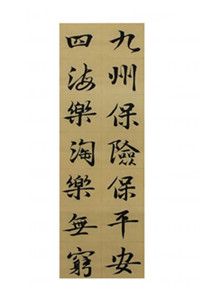 九州保險保平安
四海樂淘樂無窮